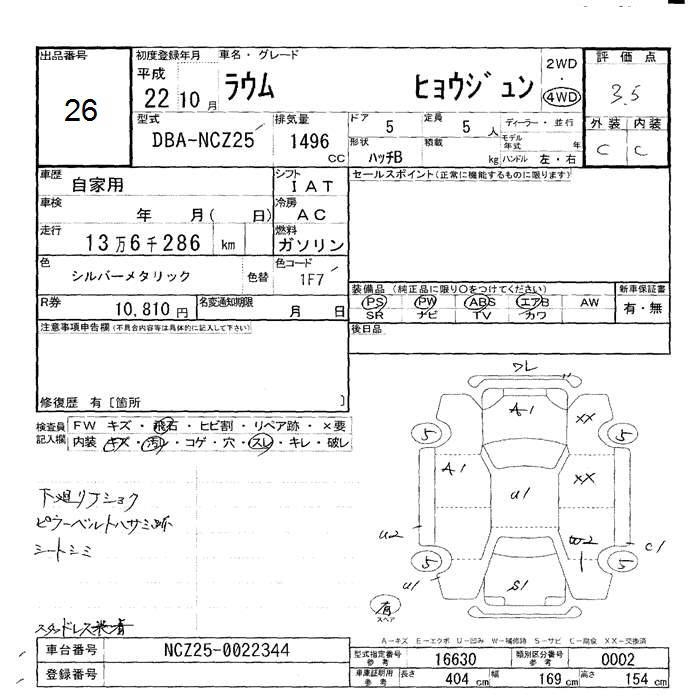 出品番号
26
初度登録年月
平成
22 10 月
車名・グレード
ラウム ヒョウジュン
2WD
・
4WD
評価点
3.5
外装 内装
C C
型式
DBA-NCZ25
排気量
1496
CC
ドア
5
定員
5 人
ディーラー・並行
モデル
年式 年
形状
ハッチB
積載
kg
ハンドル 左・右
車歴
自家用
シフト
I A T
車検
年 月( 日)
冷房
A C
走行
13 万 6 千 286 km
燃料
ガソリン
色
シルバーメタリック
色替
色コード
1F7
R券
10,810 円
名変通知期限
月 日
セールスポイント(正常に機能するものに限ります)
装備品 (純正品に限り〇をつけてください)
PS PW ABS エアB AW
SR ナビ TV カワ
新車保証書
有・無
後日品
注意事項申告欄 (不具合内容等は具体的に記入して下さい)
修復歴 有 [箇所 ]
検査員
記入欄
FW キズ・飛石・ヒビ割・リペア跡・×要
内装 キズ・汚レ・コゲ・穴・スレ・キレ・破レ
下廻りフショク
ピラーベルトハサミ跡
シートシミ
スタッドレス装着
ワレ
A1
XX
5
5
A1
U1
XX
U2
W2
C1
5
5
U1
S1
有
スペア
A-キズ E-エクボ U-凹み W-補修跡 S-サビ C-腐食 XX-交換済
車台番号
NCZ25-0022344
登録番号
型式指定番号
参考
16630
類別区分番号
参考
0002
車庫証明用
参考
長さ
404 cm
幅
169 cm
高さ
154 cm